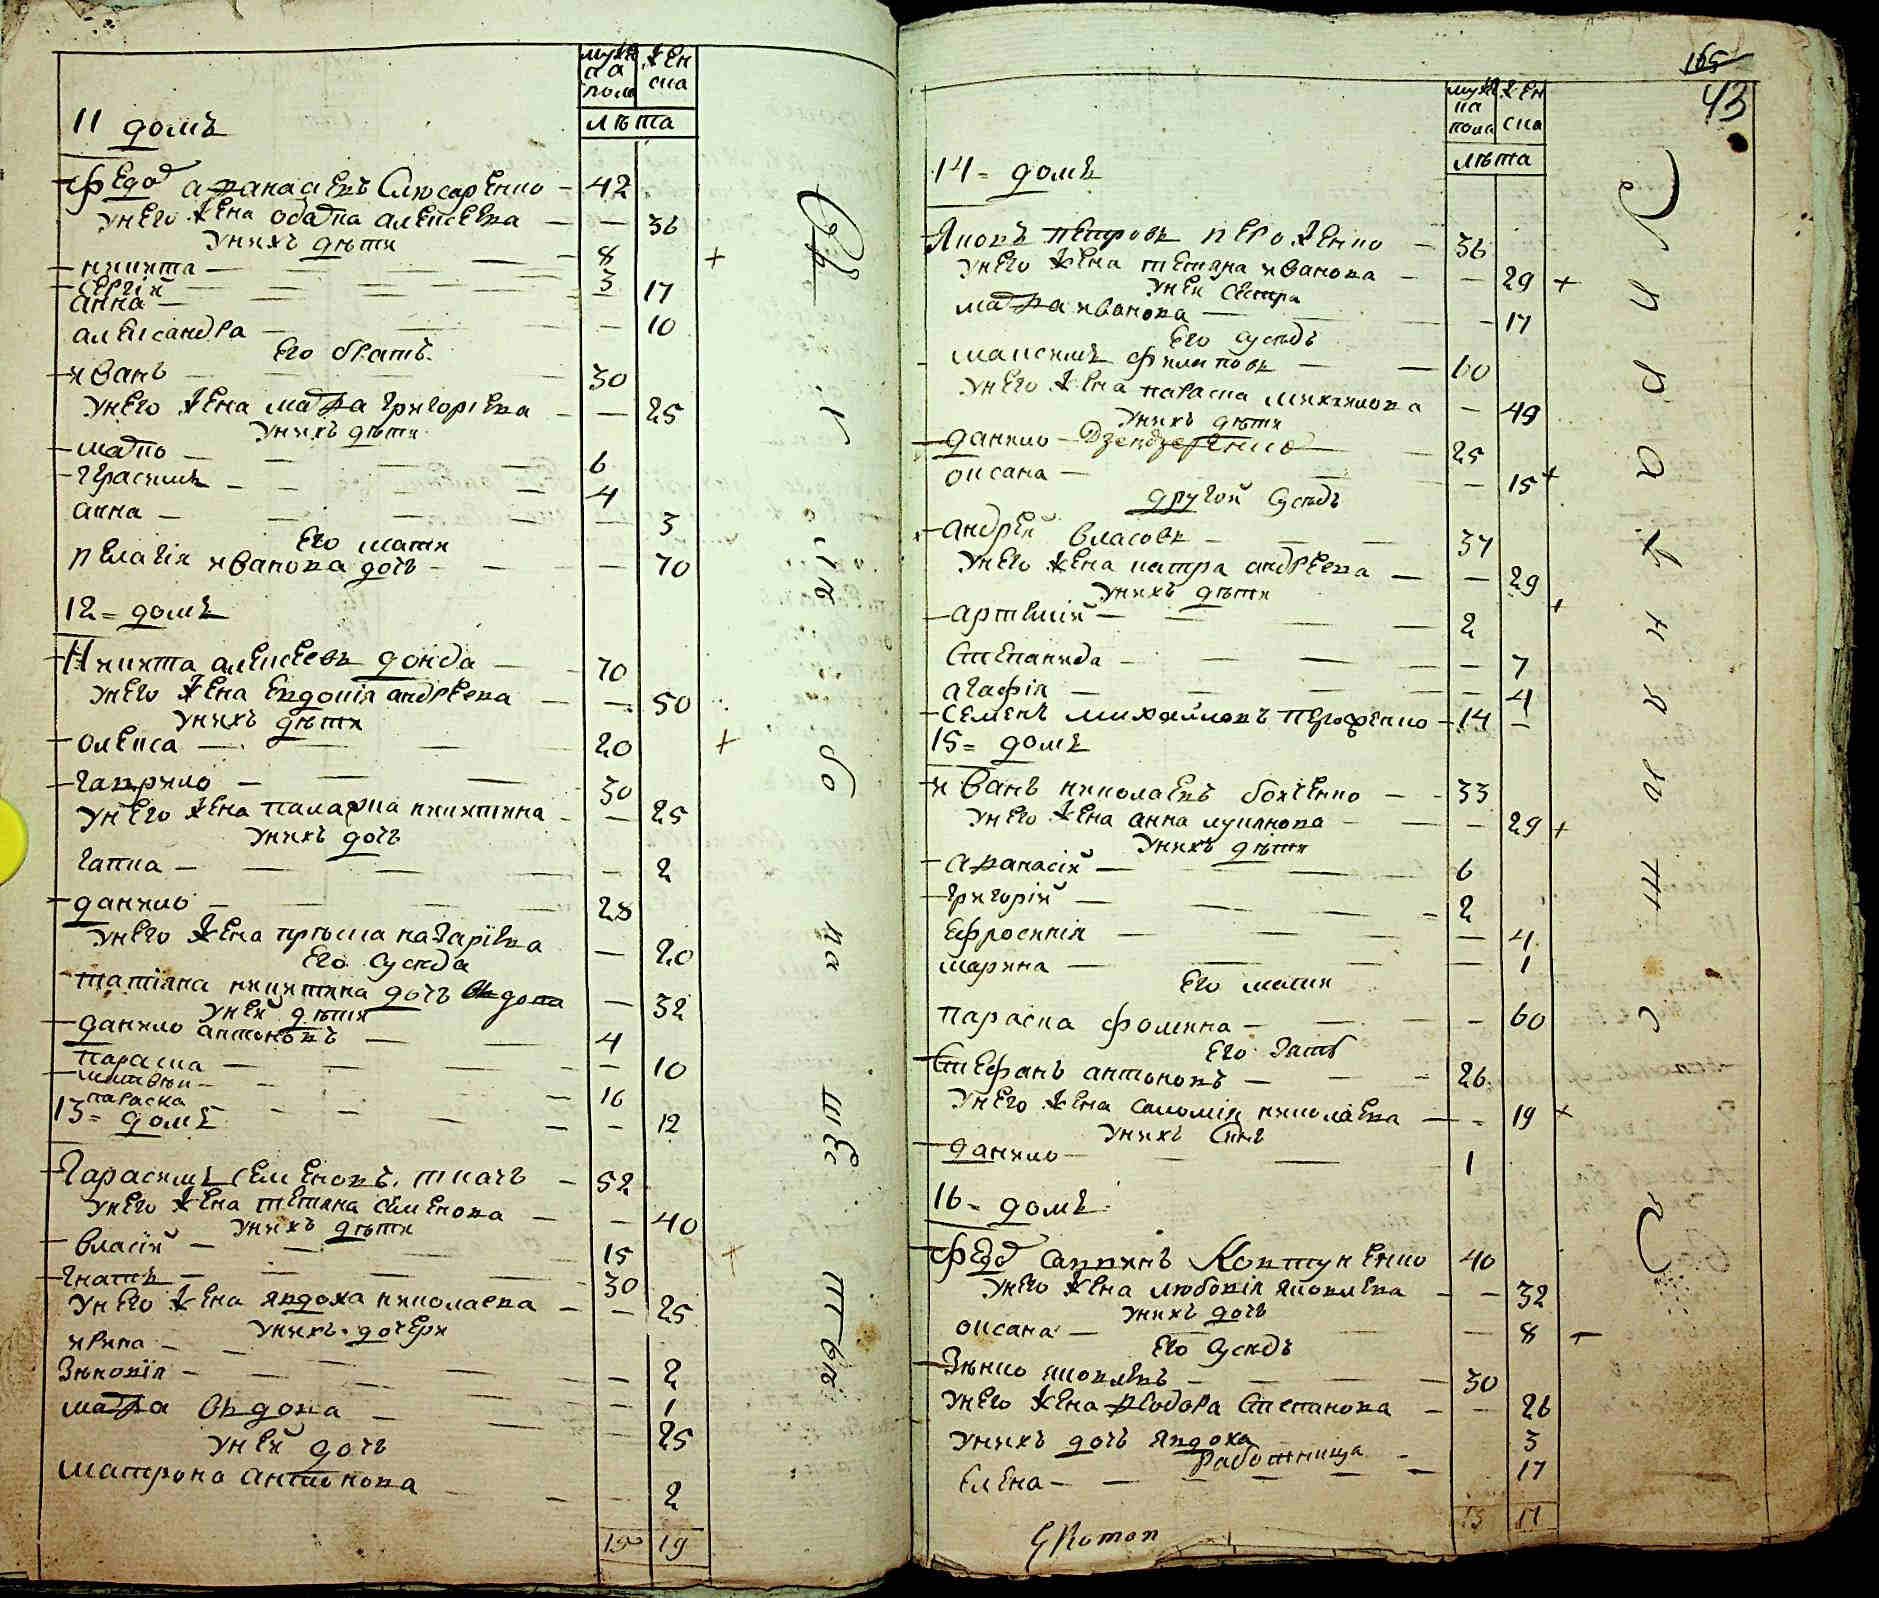 мужска пола
женска
лѣта
11 домъ
Федор афанасиевъ Слюсаренко 42
у него жена алексеева 36
у нихъ дѣти
никита 8
сергій 3
анна 17
александра 10
Его братъ
иванъ 30
у него жена григориева 25
у нихъ дѣти
6
герасимъ 4
анна 3
Его мати
пелагія иванова дочь 70
12 = домъ
Никита алексеевъ донда 70
у него жена евдокія андреева 50
у нихъ дѣти
олекса 20
гаврило 30
у него жена палажка никитина 25
у нихъ дочь
гапка 2
данило 28
у него жена приска назаріева 20
Его сусѣда
татіана никитина дочь вдова 32
у ней дѣти
данило антоновъ 4
параска 10
матвѣи 16
параска 12
13 = домъ
Гарасимъ семеновъ ткачъ 52
у него жена тетяна семенова 40
у нихъ дѣти
власій 15
гнатъ 30
у него жена явдоха николаева 25
у нихъ дочери
ирина 2
Зѣновія 1
вдова 25
у ней дочь
матрона антонова 2
15 19
165
43
мужска пола
женска
лѣта
14 = домъ
Яковъ петровъ пероженко 36
у него жена тетяна иванова 29 +
у ней сестра
иванова 17
Его сусѣдъ
максимъ филиповъ 60
у него жена параска михаилова 49
у нихъ дѣти
данило Дзендзеренко 25
оксана 15 +
другой сусѣдъ
андрей власовъ 37
у него жена андреева 29
у нихъ дѣти
артемій 2
Степанида 7
агафія 4
семенъ михайловъ пероженко 14
15 = домъ
иванъ николаевъ бояченко 33
у него жена анна лукянова 29 +
у нихъ дѣти
афанасій 6
григорій 2
ефросинія 4
марина 1
Его мати
параска фомина 60
Его зять
Стефанъ антоновъ 26
у него жена саломія николаева 19 +
у нихъ синъ
данило 1
16 = домъ
Федор савинъ Ковтуненко 40
у него жена любовія яковлева 32
у нихъ дочь
оксана 8
Его сусѣдъ
Зѣнко яковлевъ 30
у него жена феодора степанова 26
у нихъ дочь явдоха 3
работница
Елена 17
13 17